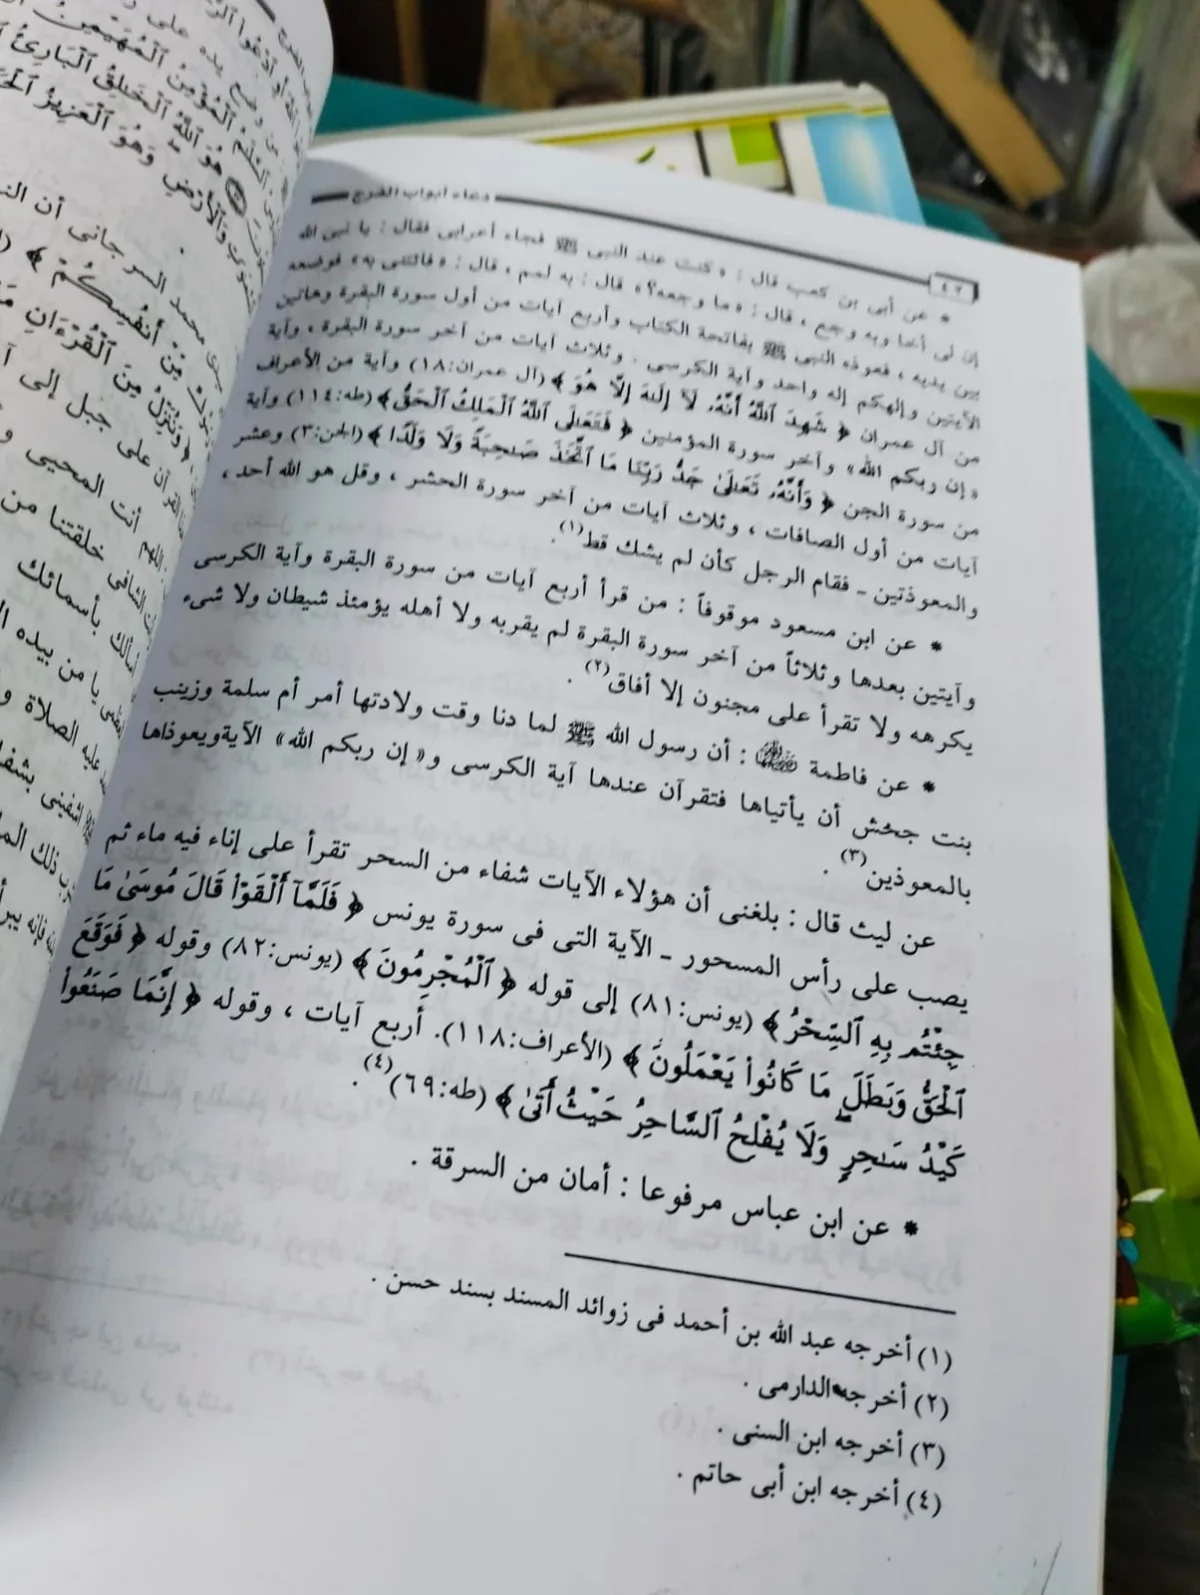 دعاء أبواب الفرج
٤٢
* عن أبى بن كعب قال : «كنت عند النبى ﷺ فجاء أعرابى فقال : يا نبى الله
إن لى أخا وبه وجع ، قال : «ما وجعه؟» قال : به لمم ، قال : «فائتنى به» فوضعه
بين يديه ، فعوذه النبى ﷺ بفاتحة الكتاب وأربع آيات من أول سورة البقرة وهاتين
الآيتين وإلهكم إله واحد وآية الكرسى . وثلاث آيات من آخر سورة البقرة ، وآية
من آل عمران ﴿ شَهِدَ ٱللَّهُ أَنَّهُۥ لَآ إِلَٰهَ إِلَّا هُوَ ﴾ (آل عمران:١٨) وآية من الأعراف
«إن ربكم الله» وآخر سورة المؤمنين ﴿ فَتَعَٰلَى ٱللَّهُ ٱلْمَلِكُ ٱلْحَقُّ ﴾ (طه:١١٤) وآية
من سورة الجن ﴿ وَأَنَّهُۥ تَعَٰلَىٰ جَدُّ رَبِّنَا مَا ٱتَّخَذَ صَٰحِبَةً وَلَا وَلَدًا ﴾ (الجن:٣) وعشر
آيات من أول الصافات ، وثلاث آيات من آخر سورة الحشر ، وقل هو الله أحد ،
والمعوذتين ـ فقام الرجل كأن لم يشك قط(١).
* عن ابن مسعود موقوفاً : من قرأ أربع آيات من سورة البقرة وآية الكرسى
وآيتين بعدها وثلاثاً من آخر سورة البقرة لم يقربه ولا أهله يؤمئذ شيطان ولا شىء
يكرهه ولا تقرأ على مجنون إلا أفاق(٢) .
* عن فاطمة رضي الله عنها : أن رسول الله ﷺ لما دنا وقت ولادتها أمر أم سلمة وزينب
بنت جخش أن يأتياها فتقرآن عندها آية الكرسى و« إن ربكم الله» الآيةويعوذاها
بالمعوذين(٣) .
عن ليث قال : بلغنى أن هؤلاء الآيات شفاء من السحر تقرأ على إناء فيه ماء ثم
يصب على رأس المسحور ـ الآية التى فى سورة يونس ﴿ فَلَمَّآ أَلْقَوْا۟ قَالَ مُوسَىٰ مَا
جِئْتُم بِهِ ٱلسِّحْرُ ﴾ (يونس:٨١) إلى قوله ﴿ ٱلْمُجْرِمُونَ ﴾ (يونس:٨٢) وقوله ﴿ فَوَقَعَ
ٱلْحَقُّ وَبَطَلَ مَا كَانُوا۟ يَعْمَلُونَ ﴾ (الأعراف:١١٨). أربع آيات ، وقوله ﴿ إِنَّمَا صَنَعُوا۟
كَيْدُ سَٰحِرٍ ۖ وَلَا يُفْلِحُ ٱلسَّاحِرُ حَيْثُ أَتَىٰ ﴾ (طه:٦٩)(٤).
* عن ابن عباس مرفوعا : أمان من السرقة .
(١) أخرجه عبد الله بن أحمد فى زوائد المسند بسند حسن .
(٢) أخرجه الدارمى .
(٣) أخرجه ابن السنى .
(٤) أخرجه ابن أبى حاتم .